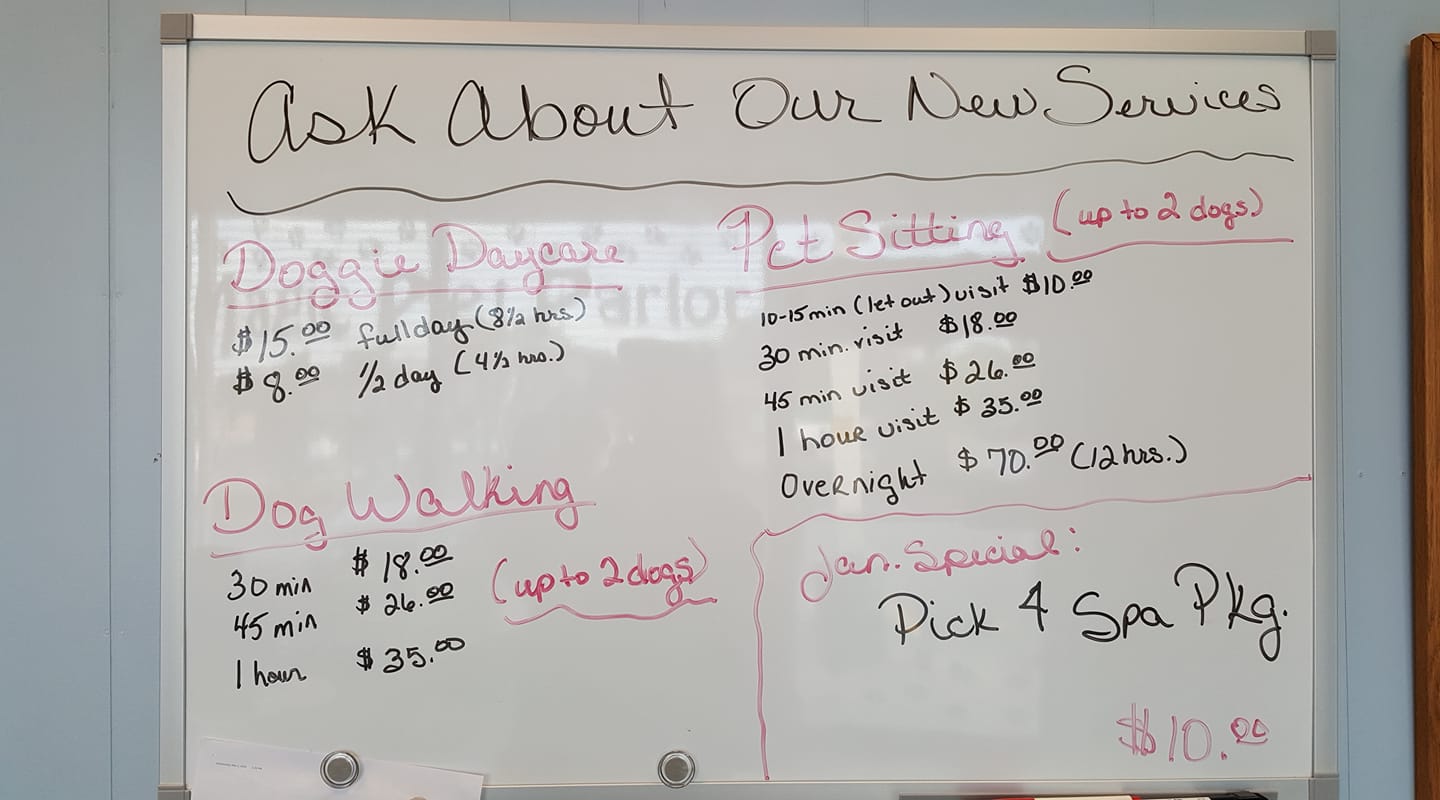 Ask About Our New Services
Doggie Daycare
$15.00 full day (8½ hrs)
$8.00 ½ day (4½ hrs.)
Pet Sitting (up to 2 dogs)
10-15min (let out) visit $10.00
30 min. visit $18.00
45 min visit $26.00
1 hour visit $35.00
Overnight $70.00 (12hrs.)
Dog Walking
(up to 2 dogs)
30 min $18.00
45 min $26.00
1 hour $35.00
Jan. Special:
Pick 4 Spa Pkg.
$10.00